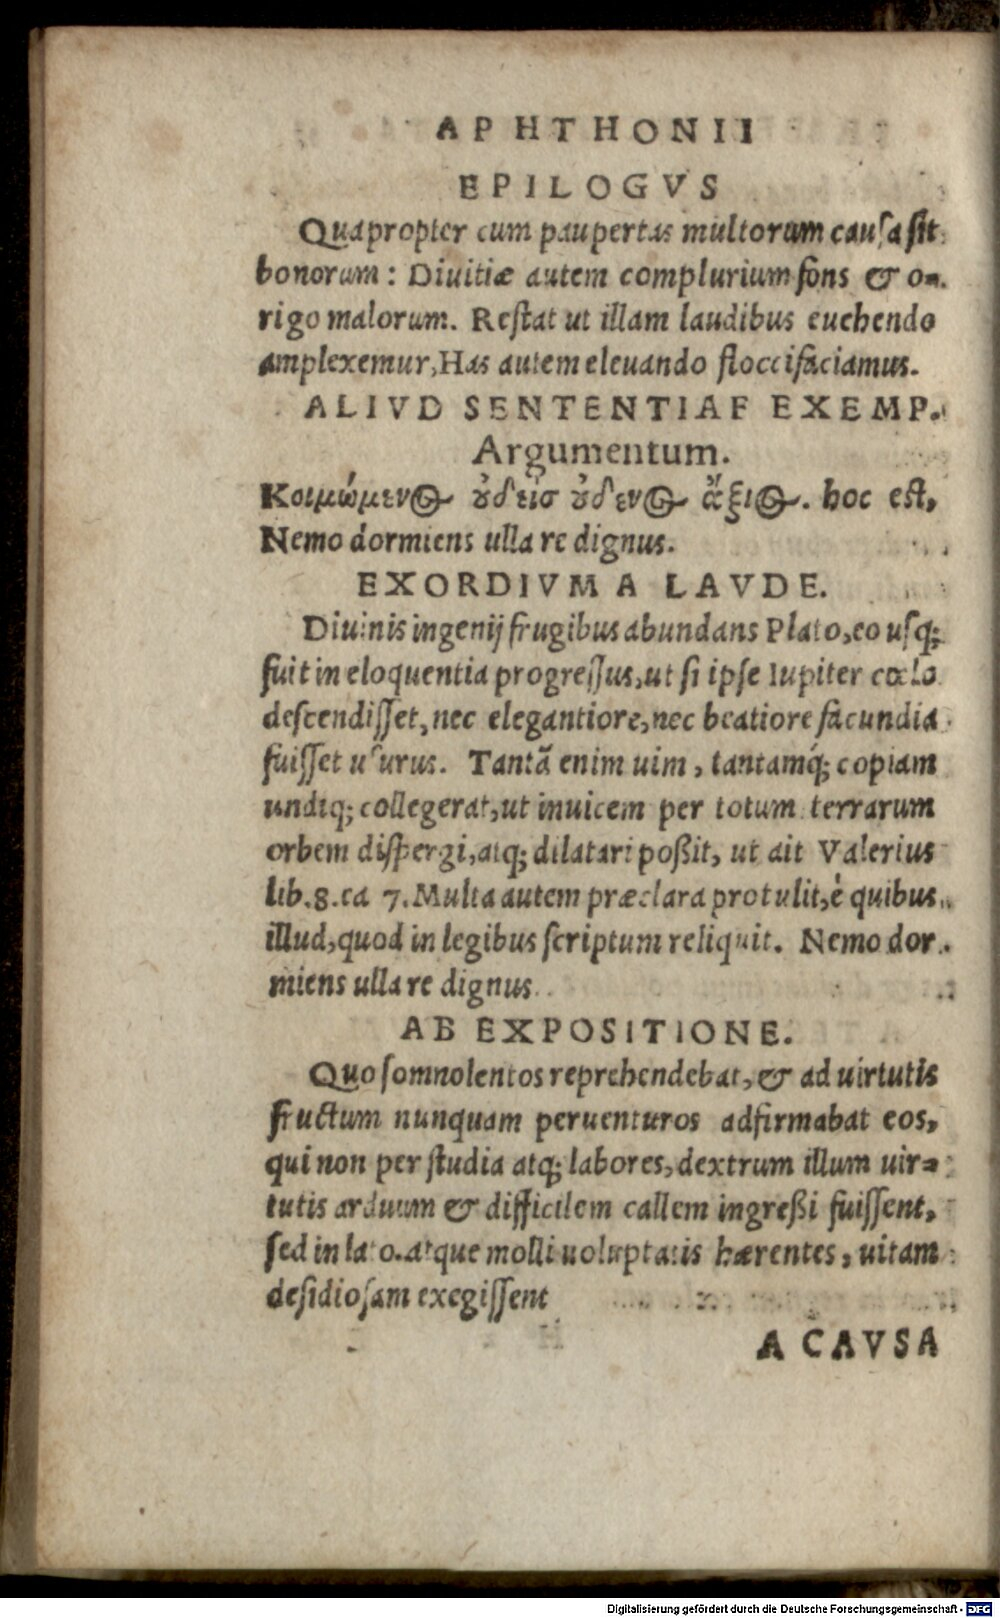 APHTHONII
EPILOGVS
Quapropter cum paupertas multorum causa sit
bonorum: Diuitiæ autem complurium fons & o-
rigo malorum. Restat ut illam laudibus euehendo
amplexemur, Has autem eleuando floccifaciamus.
ALIVD SENTENTIAE EXEMP.
Argumentum.
Κοιμώμενος ȣ̓δεὶσ ȣ̓δενὸς ἄξιος. hoc est,
Nemo dormiens ulla re dignus.
EXORDIVM A LAVDE.
Diuinis ingenij frugibus abundans Plato, eo usq;
fuit in eloquentia progressus, ut si ipse Iupiter cœlo
descendisset, nec elegantiore, nec beatiore facundia
fuisset usurus. Tantā enim uim, tantamq́; copiam
undiq; collegerat, ut inuicem per totum terrarum
orbem dispergi, atq; dilatari poßit, ut ait Valerius
lib. 8. ca 7. Multa autem præclara protulit, è quibus
illud, quod in legibus scriptum reliquit. Nemo dor-
miens ulla re dignus.
AB EXPOSITIONE.
Quo somnolentos reprehendebat, & ad uirtutis
fructum nunquam peruenturos adfirmabat eos,
qui non per studia atq; labores, dextrum illum uir-
tutis arduum & difficilem callem ingreßi fuissent,
sed in lato. atque molli uoluptatis hærentes, uitam
desidiosam exegissent
A CAVSA
Digitalisierung gefördert durch die Deutsche Forschungsgemeinschaft - DFG